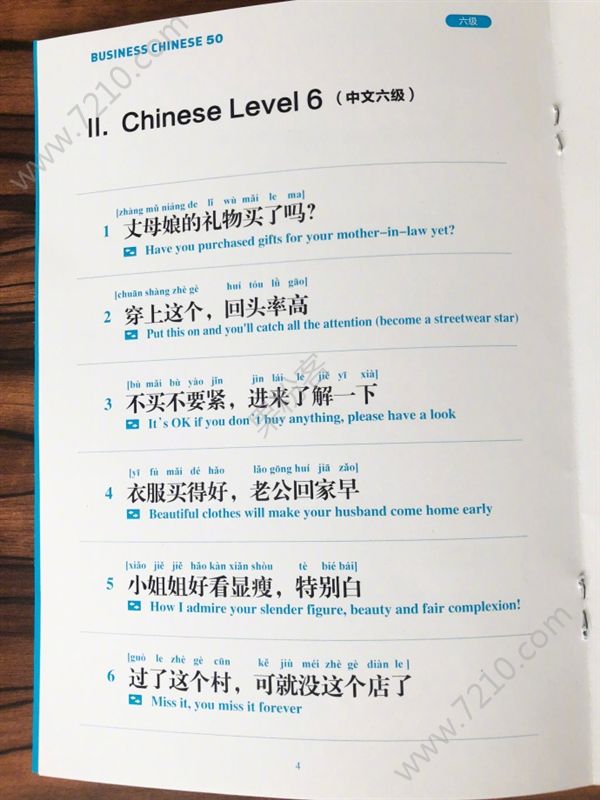 BUSINESS CHINESE 50
六级
II. Chinese Level 6 （中文六级）
[zhàng mǔ niáng de lǐ wù mǎi le ma]
1 丈母娘的礼物买了吗？
Have you purchased gifts for your mother-in-law yet?
[chuān shàng zhè gè huí tóu lǜ gāo]
2 穿上这个，回头率高
Put this on and you'll catch all the attention (become a streetwear star)
[bù mǎi bù yào jǐn jìn lái le jiě yī xià]
3 不买不要紧，进来了解一下
It's OK if you don't buy anything, please have a look
[yī fú mǎi dé hǎo lǎo gōng huí jiā zǎo]
4 衣服买得好，老公回家早
Beautiful clothes will make your husband come home early
[xiǎo jiě jiě hǎo kàn xiǎn shòu tè bié bái]
5 小姐姐好看显瘦，特别白
How I admire your slender figure, beauty and fair complexion!
[guò le zhè gè cūn kě jiù méi zhè gè diàn le]
6 过了这个村，可就没这个店了
Miss it, you miss it forever
4
www.7210.com
www.7210.com